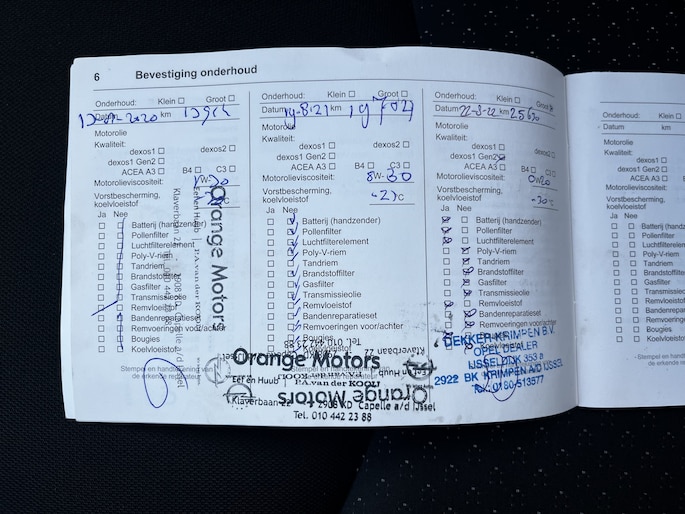 6 Bevestiging onderhoud
Onderhoud: Klein Groot
Datum 2020 km
Motorolie
Kwaliteit:
dexos1 dexos2
dexos1 Gen2
ACEA A3 B4 C3
Motorolieviscositeit: W-30
Vorstbescherming,
koelvloeistof °C
Ja Nee
Batterij (handzender)
Pollenfilter
Luchtfilterelement
Poly-V-riem
Tandriem
Brandstoffilter
Gasfilter
Transmissieolie
Remvloeistof
Bandenreparatieset
Remvoeringen voor/achter
Bougies
Koelvloeistof
Stempel en handtekening van
de erkende
Orange Motors
Eef en Huub
P.A. van der KOOIJ
Klaverbaan 22
2908 KD Capelle a/d IJssel
Onderhoud: Klein Groot
Datum 19-8-21 km 19702
Motorolie
Kwaliteit:
dexos1 dexos2
dexos1 Gen2
ACEA A3 B4 C3
Motorolieviscositeit: W-30
Vorstbescherming,
koelvloeistof °C
Ja Nee
Batterij (handzender)
Pollenfilter
Luchtfilterelement
Poly-V-riem
Tandriem
Brandstoffilter
Gasfilter
Transmissieolie
Remvloeistof
Bandenreparatieset
Remvoeringen voor/achter
Bougies
Koelvloeistof
Orange Motors
Eef en Huub
P.A. van der KOOIJ
Klaverbaan 22
2908 KD Capelle a/d IJssel
Tel. 010 442 23 88
Orange Motors
Onderhoud: Klein Groot
Datum 22-8-22 km
Motorolie
Kwaliteit:
dexos1 dexos2
dexos1 Gen2
ACEA A3 B4 C3
Motorolieviscositeit: 0W20
Vorstbescherming,
koelvloeistof -30°C
Ja Nee
Batterij (handzender)
Pollenfilter
Luchtfilterelement
Poly-V-riem
Tandriem
Brandstoffilter
Gasfilter
Transmissieolie
Remvloeistof
Bandenreparatieset
Remvoeringen voor/achter
DEKKER KRIMPEN B.V.
OPEL DEALER
IJSSELDIJK 353 a
2922 BK KRIMPEN A/D IJSSEL
Tel. 0180-513577
Onderhoud: Klein
Datum km
Motorolie
Kwaliteit:
dexos1
dexos1 Gen2
ACEA A3
Motorolieviscositeit:
Vorstbescherming,
koelvloeistof
Ja Nee
Batterij
Pollenfilter
Luchtfilterelement
Poly-V-riem
Tandriem
Brandstoffilter
Gasfilter
Transmissieolie
Remvloeistof
Bandenreparatieset
Remvoeringen
Bougies
Koelvloeistof